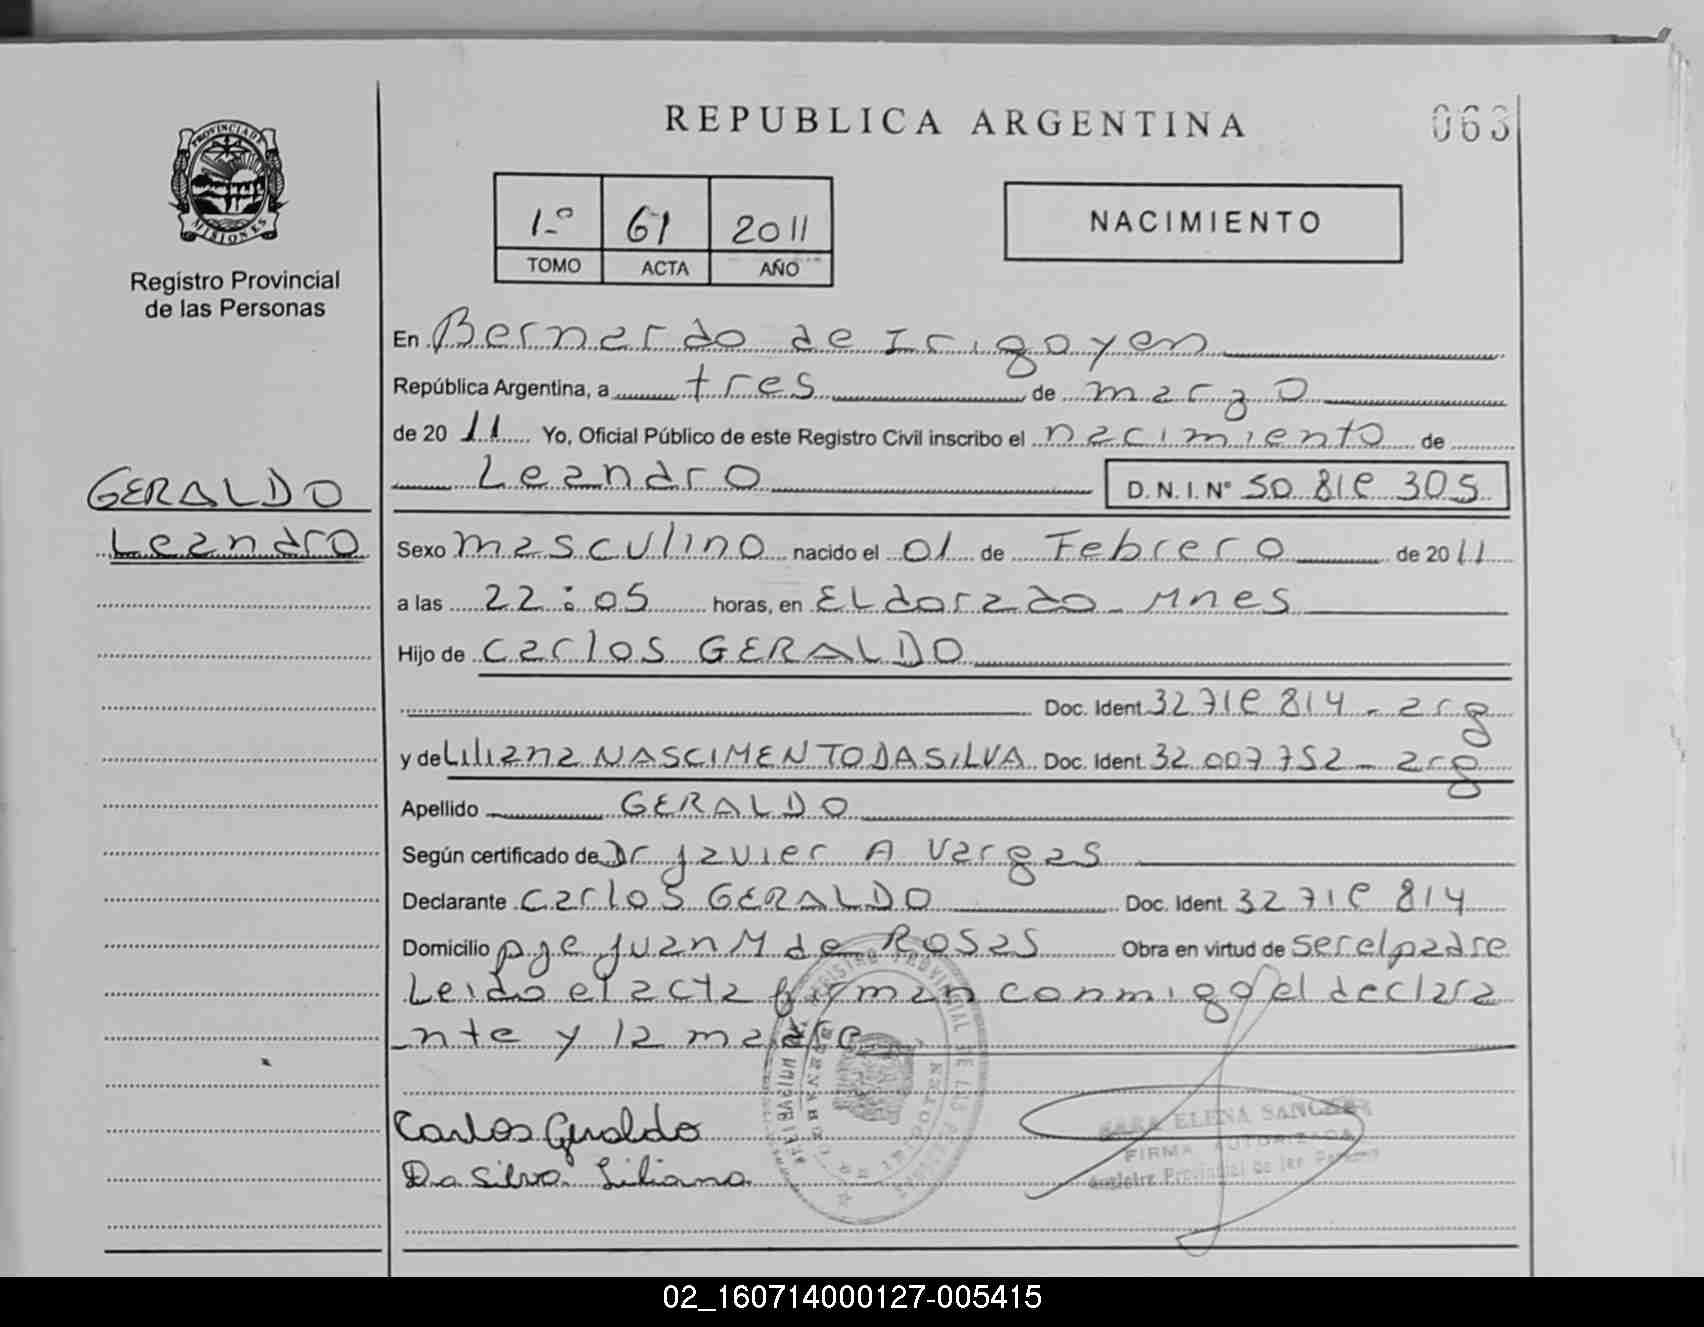 REPUBLICA ARGENTINA
063
PROVINCIA DE
MISIONES
Registro Provincial
de las Personas
1º 61 2011
TOMO ACTA AÑO
NACIMIENTO
En Bernardo de Irigoyen
República Argentina, a tres de marzo
de 2011 Yo, Oficial Público de este Registro Civil inscribo el nacimiento de
Leandro D.N.I. Nº 50 810 305
GERALDO
Leandro
Sexo masculino nacido el 01 de Febrero de 2011
a las 22:05 horas, en Eldorado - Mnes
Hijo de Carlos GERALDO
Doc. Ident. 32 710 814 - arg
y de Liliana NASCIMENTO DA SILVA Doc. Ident. 32 007 752 - arg
Apellido GERALDO
Según certificado de Dr Javier A Vargas
Declarante Carlos GERALDO Doc. Ident. 32 710 814
Domicilio pje Juan M de Rosas Obra en virtud de ser el padre
Leido el acta firman conmigo el declara
nte y la madre
Carlos Geraldo
Da Silva Liliana
REGISTRO PROVINCIAL DE LAS PERSONAS
SARA ELENA SANCHEZ
FIRMA AUTORIZADA
Registro Provincial de las Personas
02_160714000127-005415